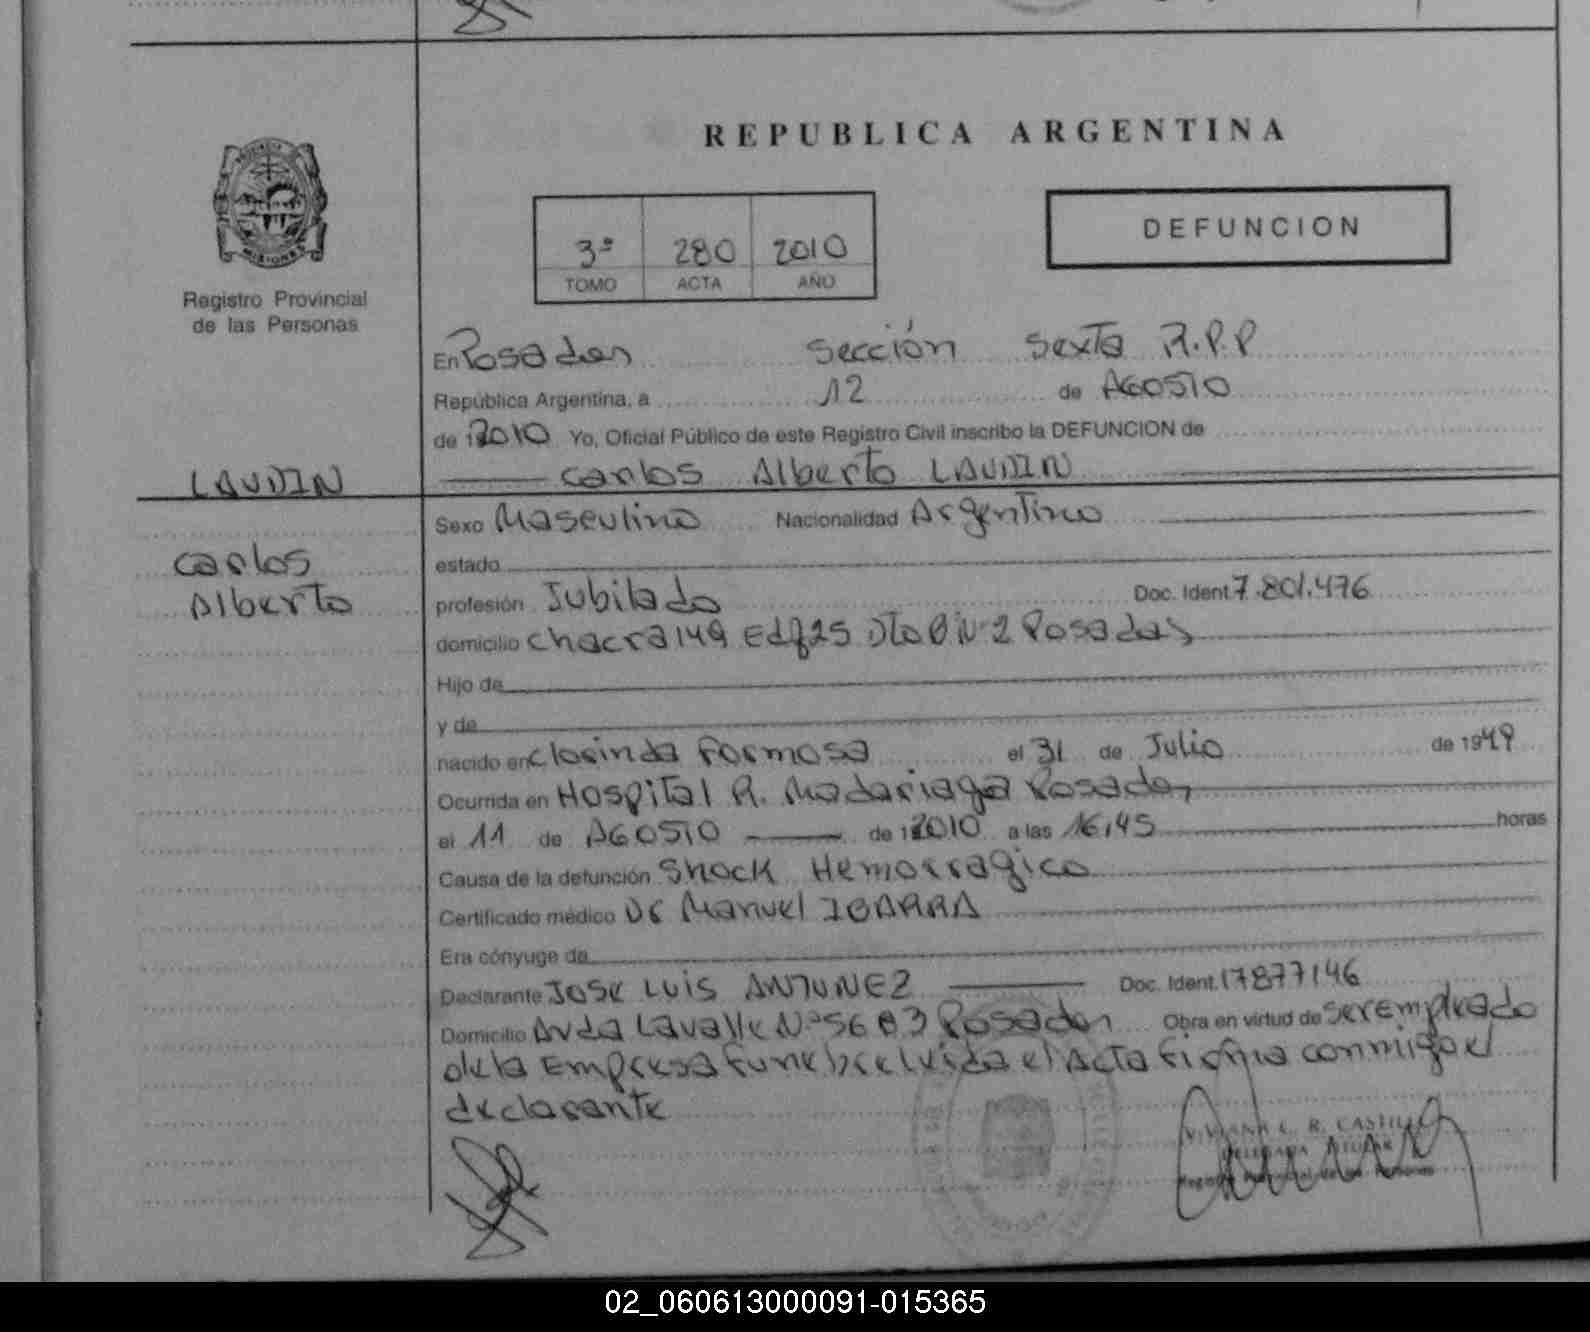 REPUBLICA ARGENTINA
MISIONES
Registro Provincial
de las Personas
3º 280 2010
TOMO ACTA AÑO
DEFUNCION
En Posadas sección sexta R.P.P
República Argentina, a 12 de AGOSTO
de 2010 Yo, Oficial Público de este Registro Civil inscribo la DEFUNCION de
LAUDIN
Carlos Alberto LAUDIN
Sexo Masculino Nacionalidad Argentino
Carlos
Alberto
estado
profesión Jubilado Doc. Ident 7.801.476
domicilio chacra 149 Edf 25 Dto B Nº 2 Posadas
Hijo de
y de
nacido en Clorinda Formosa el 31 de Julio de 1949
Ocurrida en Hospital R. Madariaga Posadas
el 11 de AGOSTO de 2010 a las 16,45 horas
Causa de la defunción Shock Hemorragico
Certificado médico Dr Manuel IBARRA
Era cónyuge de
Declarante JOSE LUIS ANTUNEZ Doc. Ident. 17877146
Domicilio Avda Lavalle Nº 5683 Posadas Obra en virtud de ser empleado
de la Empresa Funebre leida el Acta firma conmigo el
declarante
VIVIANA R. CASTILLO
DELEGADA TITULAR
Registro Provincial de las Personas
02_060613000091-015365